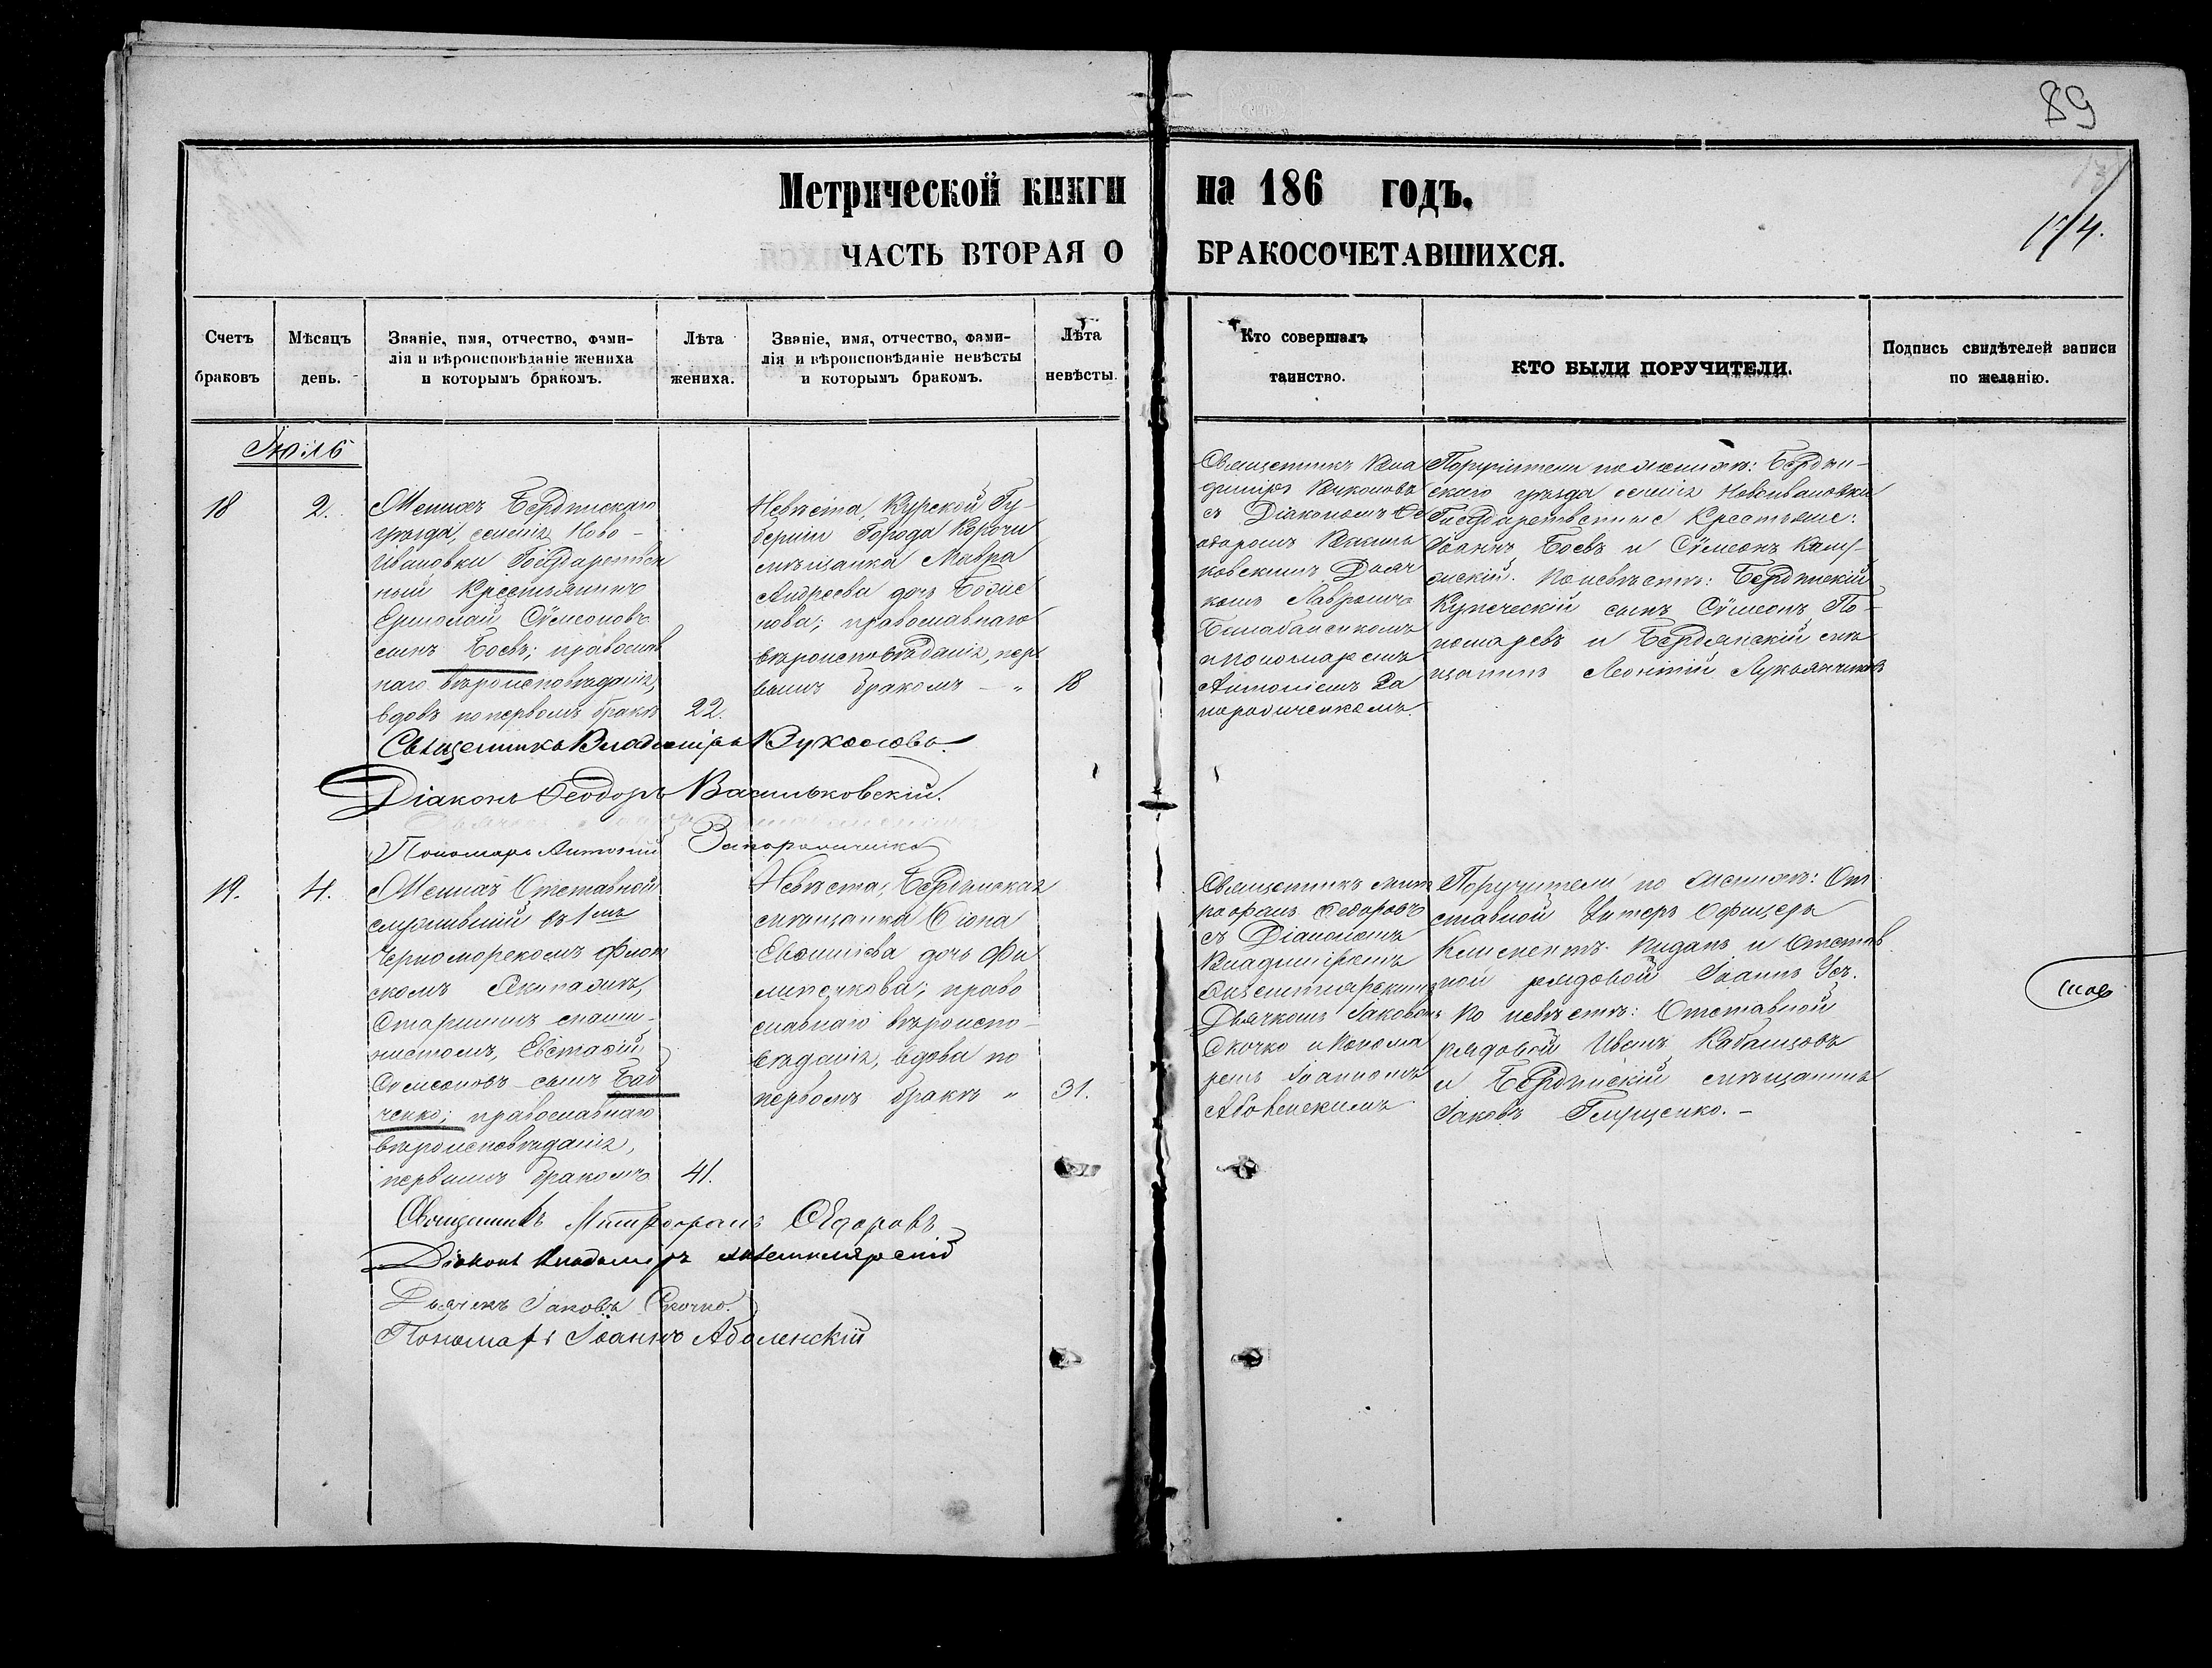 89
174.
Метрической книги на 186 годъ.
ЧАСТЬ ВТОРАЯ О БРАКОСОЧЕТАВШИХСЯ.
Счетъ браковъ
Мѣсяцъ день.
Званіе, имя, отчество, фами-
лія и вѣроисповѣданіе жениха
и которымъ бракомъ.
Лѣта жениха.
Званіе, имя, отчество, фами-
лія и вѣроисповѣданіе невѣсты
и которымъ бракомъ.
Лѣта невѣсты.
Кто совершалъ
таинство.
КТО БЫЛИ ПОРУЧИТЕЛИ.
Подпись свидѣтелей записи
по желанію.
Іюль
18
2.
Женихъ Бердянскаго
уѣзда, селенія Ново-
Ивановки Государствен
ный Крестьянинъ
Ермолай Сѵмеоновъ
сынъ Боевъ; православ
наго вѣроисповѣданія,
вдовъ по первомъ бракѣ
22.
Невѣста, Курской Гу-
берніи Города Корочи
мѣщанка Мавра
Андреева дочь
нова; православнаго
вѣроисповѣданія, пер
вымъ бракомъ — "
18
Священникъ Вла
димиръ Вуколовъ
съ Діакономъ Ѳе
одоромъ Василь
ковскимъ Дьяч
комъ
Балабаненкомъ
и пономаремъ
Антоніемъ За
пороженкомъ.
Поручители по женихѣ: Бердян-
скаго уѣзда селенія Новоивановки
Государственные Крестьяне:
Іоаннъ Боевъ и Сѵмеонъ Калу-
жскій. По невѣстѣ: Бердянскій
Купеческій сынъ Сѵмеонъ По-
номаревъ и Бердянскій мѣ
щанинъ Леонтій Лукьянчиковъ
Священникъ Владиміръ Вуколовъ.
Діаконъ Ѳеодоръ Васильковскій.
Пономарь Антоній
19.
4.
Женихъ Отставной
служившій въ 1мъ
Черноморскомъ Флот
скомъ Экипажѣ,
Старшимъ
нистомъ, Евстафій
Сѵмеоновъ сынъ Бай
ченко; православнаго
вѣроисповѣданія,
первымъ бракомъ
41.
Невѣста, Бердянская
мѣщанка
Евфиміева дочь Фи
липенкова; право
славнаго вѣроиспо-
вѣданія, вдова по
первомъ бракѣ "
31.
Священникъ Мит
рофанъ Федоровъ
съ Діакономъ
Владиміромъ
Дьячкомъ Іаковомъ
Скочко и Понома
ремъ Іоанномъ
Аболенскимъ
Поручители по женихѣ: От
ставной Унтеръ Офицеръ
Климентъ и Отстав
ной рядовой Іоаннъ Усъ.
По невѣстѣ: Отставной
рядовой Иванъ Кабанцовъ
и Бердянскій мѣщанинъ
Іаковъ
Священникъ Митрофанъ Ѳедоровъ
Діаконъ Владиміръ
Дьячекъ Іаковъ Скочко.
Пономарь Іоаннъ Аболенскій